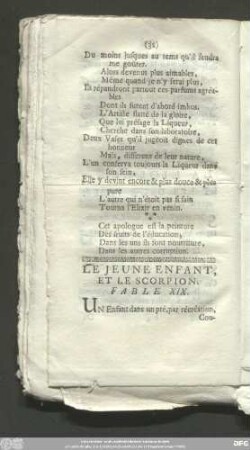 (32)
Du moins jusques au tems qu'il faudra
me goûter.
Alors devenus plus aimables,
Même quand je n'y serai plus,
Ils répandront partout ces parfums agréa-
bles
Dont ils furent d'abord imbus.
L'Artiste flatté de la gloire,
Que lui présage la Liqueur,
Cherche dans son laboratoire,
Deux Vases qu'il jugeoit dignes de cet
honneur
Mais, différens de leur nature,
L'un conserva toujours la Liqueur dans
son sein,
Elle y devint encore & plus douce & plus
pure
L'autre qui n'étoit pas si sain
Tourna l'Elixir en venin.
**
Cet apologue est la peinture
Des fruits de l'éducation,
Dans les uns ils sont nourriture,
Dans les autres corruption.
LE JEUNE ENFANT,
ET LE SCORPION.
FABLE XIX.
UN Enfant dans un pré, par récréation,
Cou-